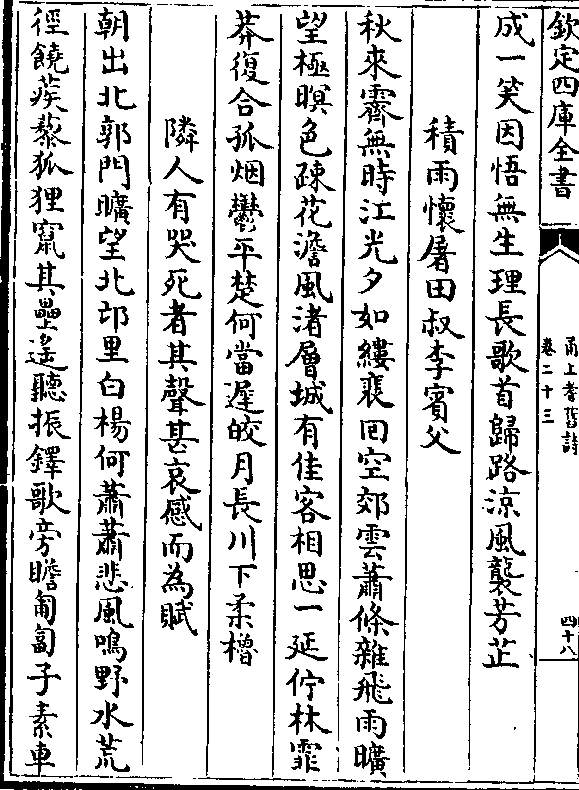 欽定四庫全書
甬上耆舊詩
卷二十三
四十八
成一笑因悟無生理長歌首歸路涼風襲芳芷
積雨懷屠田叔李賓父
秋來霽無時江光夕如縷裵回空郊雲蕭條雜飛雨曠
望極暝色疎花澹風渚層城有佳客相思一延佇林霏
莽復合孤烟鬱平楚何當遲皎月長川下柔櫓
隣人有哭死者其聲甚哀感而為賦
朝出北郭門曠望北邙里白楊何蕭蕭悲風鳴野水荒
徑饒蒺藜狐狸竄其壘遙聽振鐸歌旁瞻匍匐子素車